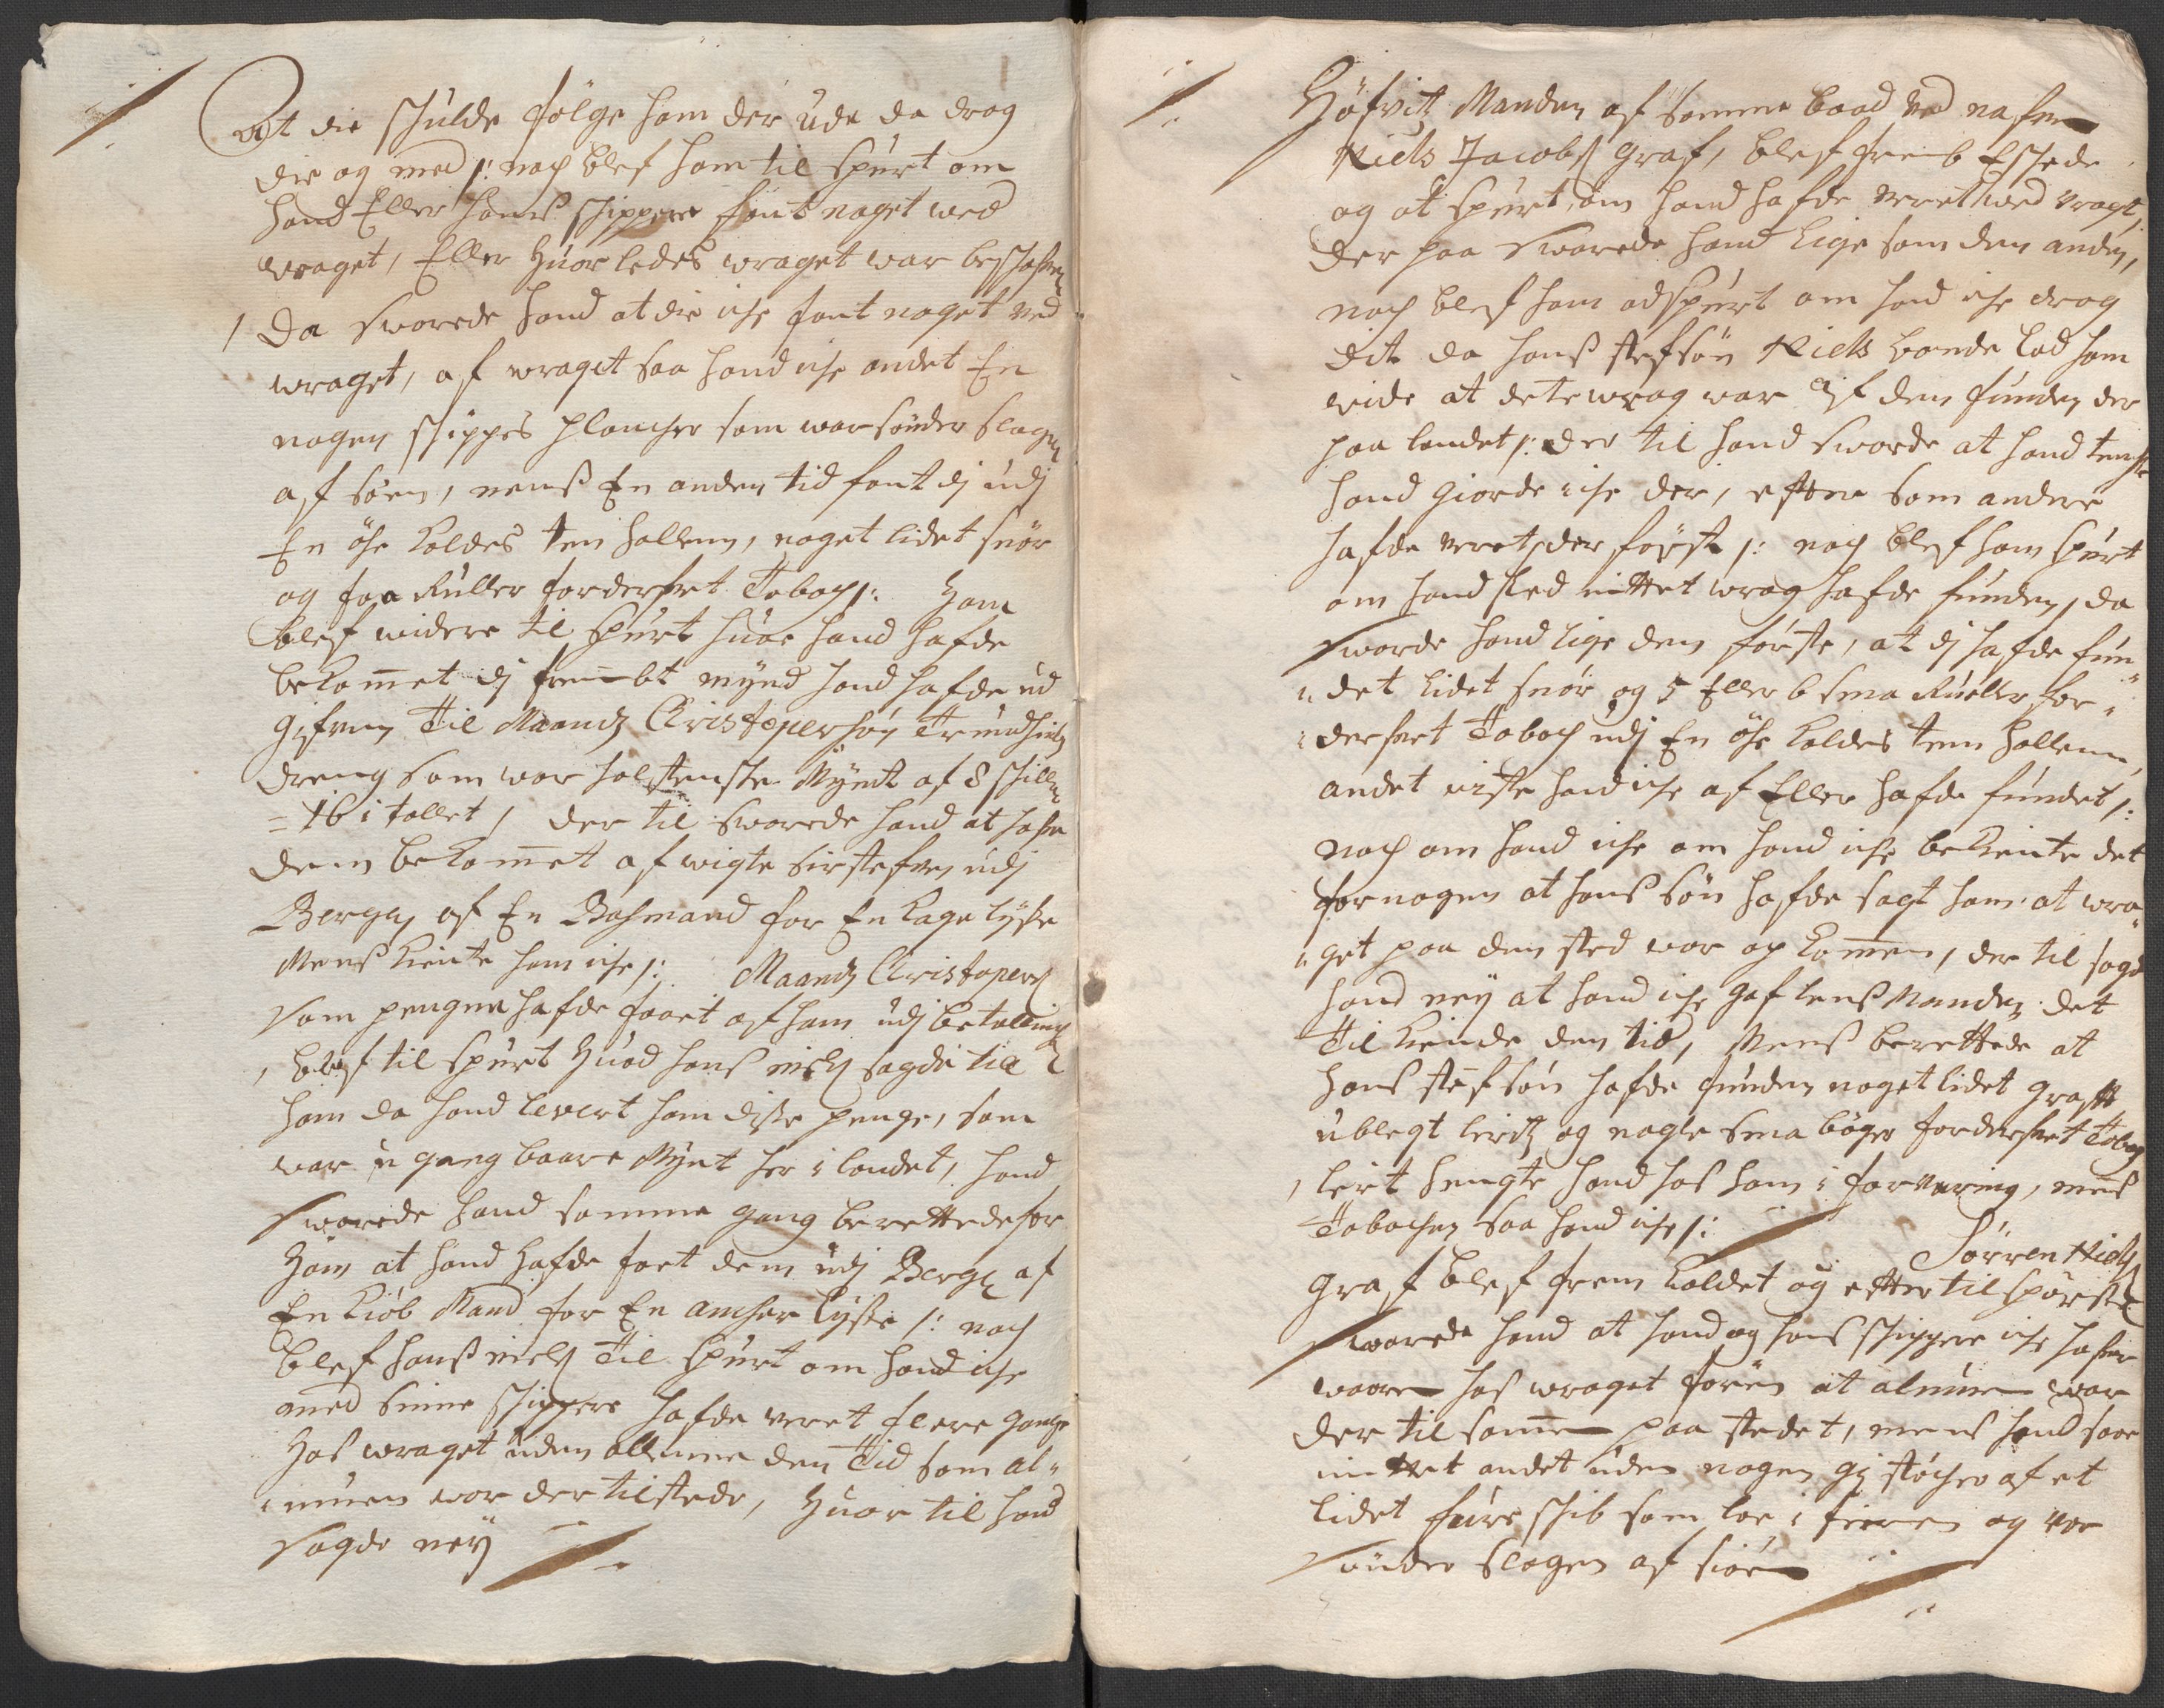 At die schulde følge ham der ude da drog
die og med /: noch blef ham til spurt om
hand Eller hans schippere fant noget wed
wraget, Eller huorledes wraget war beschafen
/ Da sworede hand at die iche fant noget ved
wraget, af wraget saa hand iche andet En
nogen schippes plancher som war sönder slagen
af söen, mens En anden tid fant dj udj
En öhe kaldes ten hollem, noget lidet snör
og faa Ruller forderfvet Toboch /: Ham
blef widere til spurt huor hand hafde
bekommet dj frembt mynd hand hafde ud
gifven Til Maandz Christopersøn
dreng som war holstenske Mÿnt af 8 schill
= 16 i tallet / der til sworede hand at hafve
dem bekommet af udj
Bergen af En Bosmand for En kage lyse
Mens kiente ham iche /: Maandz Christopers
som pengene hafde faaet af ham udj betalling
/ blef til spurt huad hans niels sagde til
ham da hand levert ham disse penge, som
war u gangbaare Mÿnt her i landet, hand
sworede hand samme gang berettede for
ham at hand hafde faaet dem udj Bergen af
En kiöb Mand for En ancher lyse /: noch
blef hans niels Til spurt om hand iche
med sinne schippere hafde veret flere gange
hos wraget uden allenne den Tid som al„
„muen war der tilstede, huor til hand
sagde neÿ
Höfvitz Manden af samme baad ved nafn
Niels Jacobs graf, blef frem Eschede
og at spurt om hand hafde veret wed vragt,
der paa sworede hand lige som den anden,
noch blef ham adspurt om hand iche drog
dit da hans stefsön Niels bonde lod ham
vide at dete wrag war af dem funden der
paa landet /: der til hand sworde at hand tenchte
hand giorde iche der, efter som andre
hafde veret der först /: noch blef ham spurt
om hand ved mittet wrag hafde funden, da
sworde hand lige den förste, at dj hafde fun„
„det lidet snör og 5 Eller 6 sma Ruller for„
„derfvet Toboch udj En öhe kaldes tem hollem,
andet viste hand iche af Eller hafde fundet /:
noch om hand iche om hand iche bekiente det
for nogen at hans sön hafde sagt ham at wra„
„get paa den sted war op kommen, der til sagde
hand neÿ at hand iche gaf lensmanden det
Til kiende den tid, Mens berettede at
hans stefsön hafde funden noget lidet grofft
ublegt lerit og nogle sma böger forderfvet Toboch
/ lerit hengte hand hos ham i forvaring, mens
Tobochen saa hand iche /:
Sörren Niels
graf blef frem kaldet og efter tilspörsel
sworede hand at hand og hans schippere iche hafver
waaren hos wraget foren at almuen war
der til samen paa stedet, mens hand saae
mittet andet uden nogen støcher af et
lidet fure schib som laae i fieren og var
sönder slagen af siöen